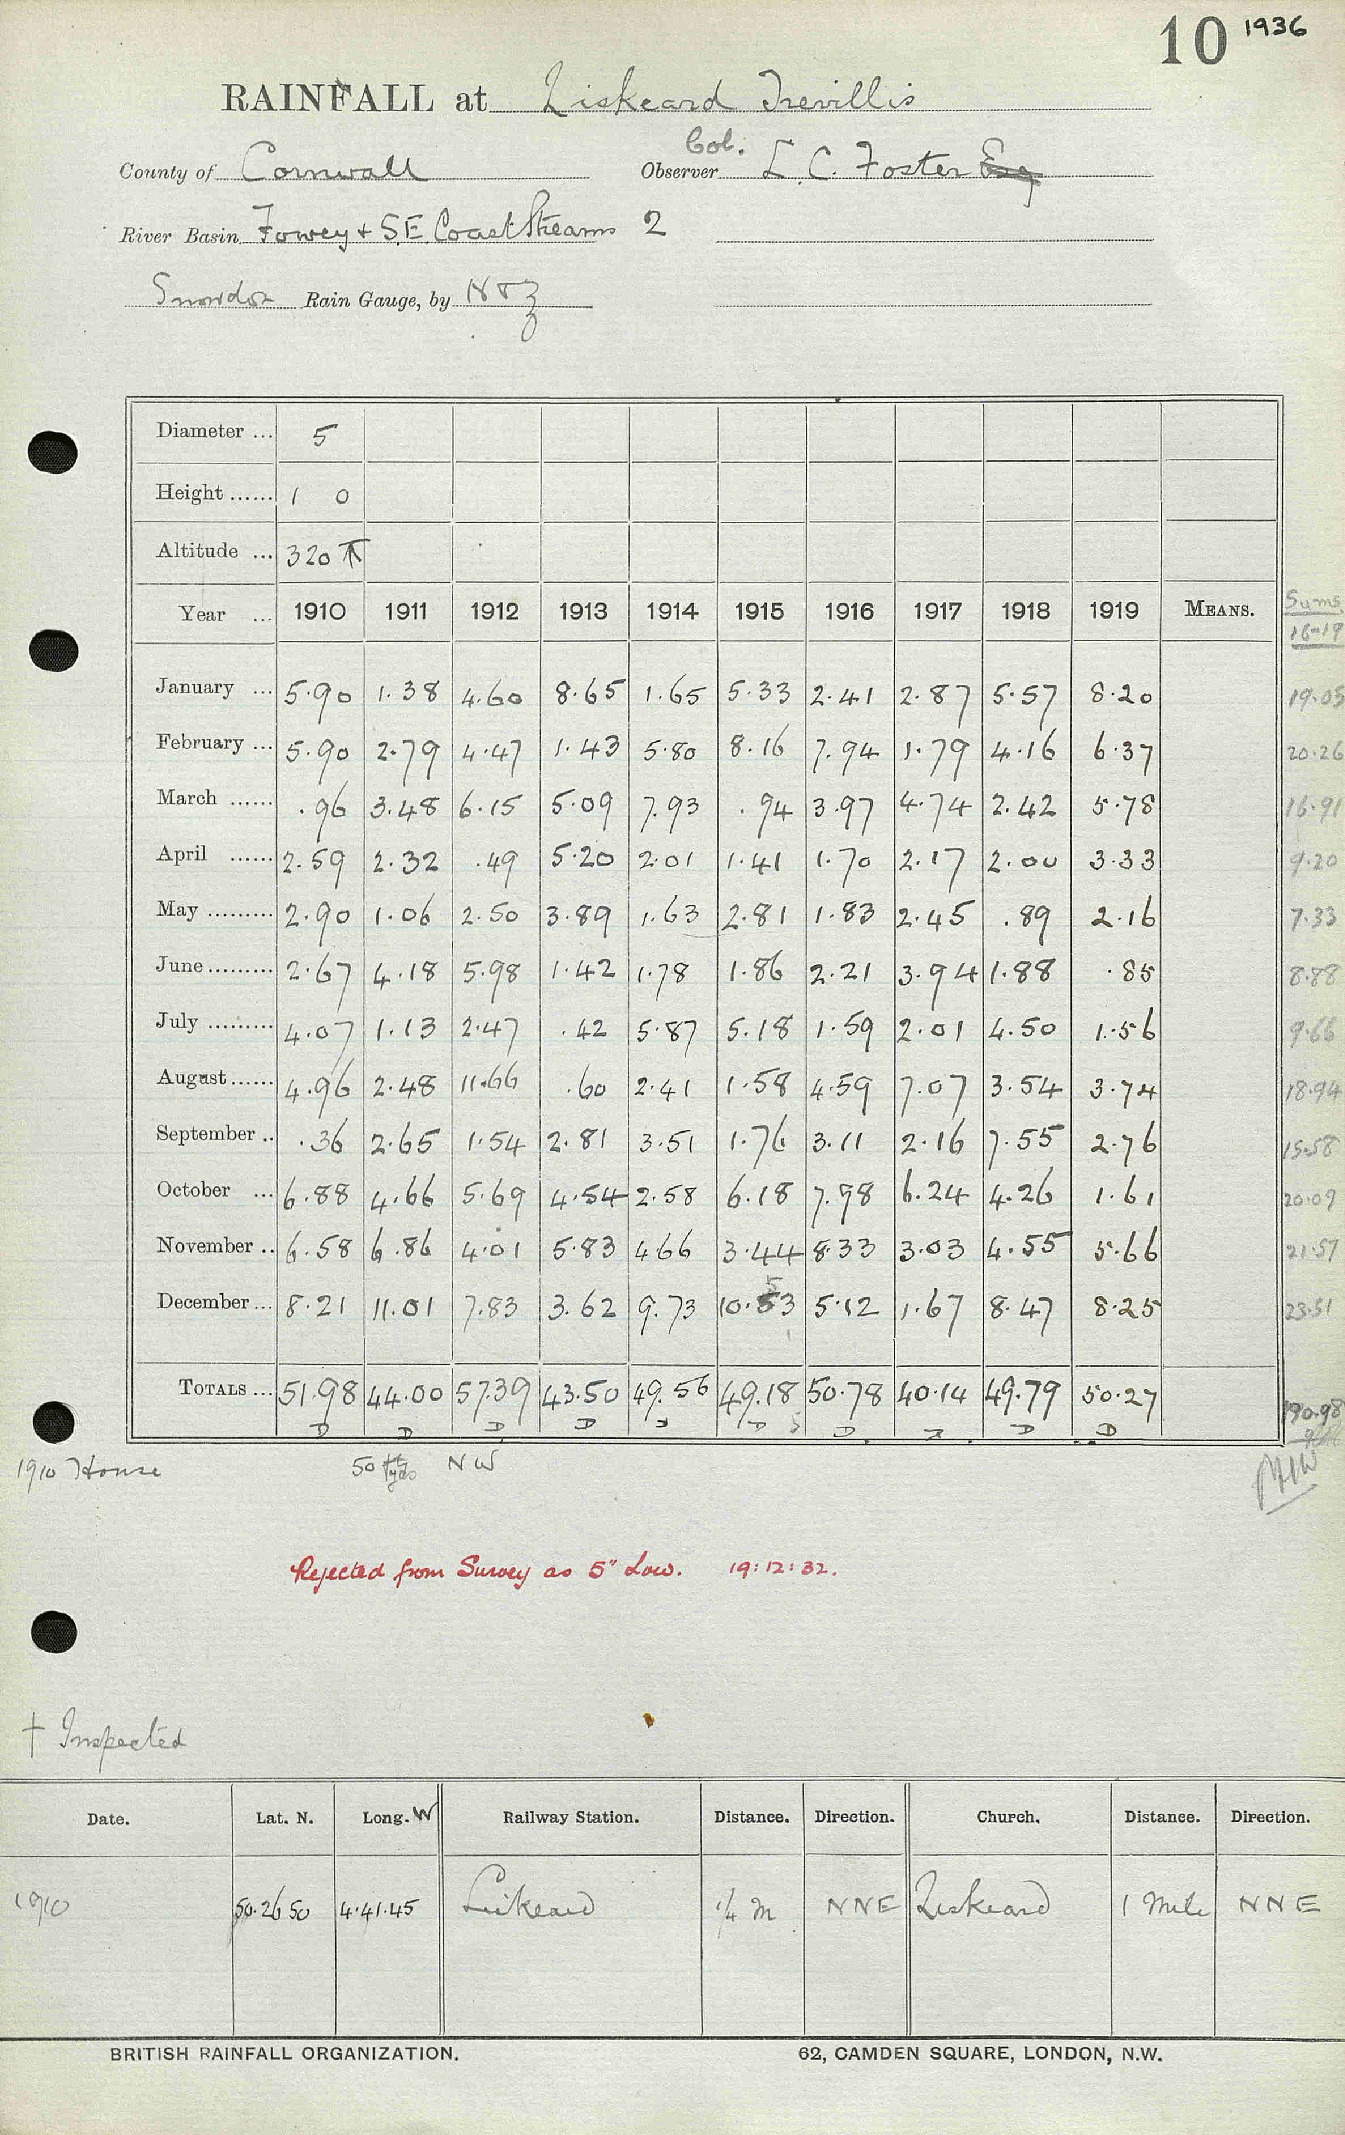 10 1936
RAINFALL at Liskeard Trevillis
Col.
County of Cornwall Observer L. C. Foster Esq
River Basin Fowey + S.E. Coast Streams 2
Snowdon Rain Gauge, by N & Z
Diameter ... 5
Height ...... 1 0
Altitude ... 320 T
Sums
Year ... 1910 1911 1912 1913 1914 1915 1916 1917 1918 1919 MEANS. 16-19
January ... 5.90 1.38 4.60 8.65 1.65 5.33 2.41 2.87 5.57 8.20 19.05
February ... 5.90 2.79 4.47 1.43 5.80 8.16 7.94 1.79 4.16 6.37 20.26
March ...... .96 3.48 6.15 5.09 7.93 .94 3.97 4.74 2.42 5.78 16.91
April ...... 2.59 2.32 .49 5.20 2.01 1.41 1.70 2.17 2.00 3.33 9.20
May ......... 2.90 1.06 2.50 3.89 1.63 2.81 1.83 2.45 .89 2.16 7.33
June ......... 2.67 4.18 5.98 1.42 1.78 1.86 2.21 3.94 1.88 .85 8.88
July ......... 4.07 1.13 2.47 .42 5.87 5.18 1.59 2.01 4.50 1.56 9.66
August ...... 4.96 2.48 11.66 .60 2.41 1.58 4.59 7.07 3.54 3.74 18.94
September .. .36 2.65 1.54 2.81 3.51 1.76 3.11 2.16 7.55 2.76 15.58
October ... 6.88 4.66 5.69 4.54 2.58 6.18 7.98 6.24 4.26 1.61 20.09
November .. 6.58 6.86 4.01 5.83 4.66 3.44 8.33 3.03 4.55 5.66 21.57
5
December ... 8.21 11.01 7.83 3.62 9.73 10.53 5.12 1.67 8.47 8.25 23.51
TOTALS ... 51.98 44.00 57.39 43.50 49.56 49.18 50.78 40.14 49.79 50.27 190.98
D D D D D D 5 D D D D
1910 House 50 yds NW
Rejected from Survey as 5" Low. 19:12:32.
† Inspected
Date. Lat. N. Long. W Railway Station. Distance. Direction. Church. Distance. Direction.
1910 50.26 50 4.41.45 Liskeard 1/4 m NNE Liskeard 1 Mile NNE
BRITISH RAINFALL ORGANIZATION. 62, CAMDEN SQUARE, LONDON, N.W.